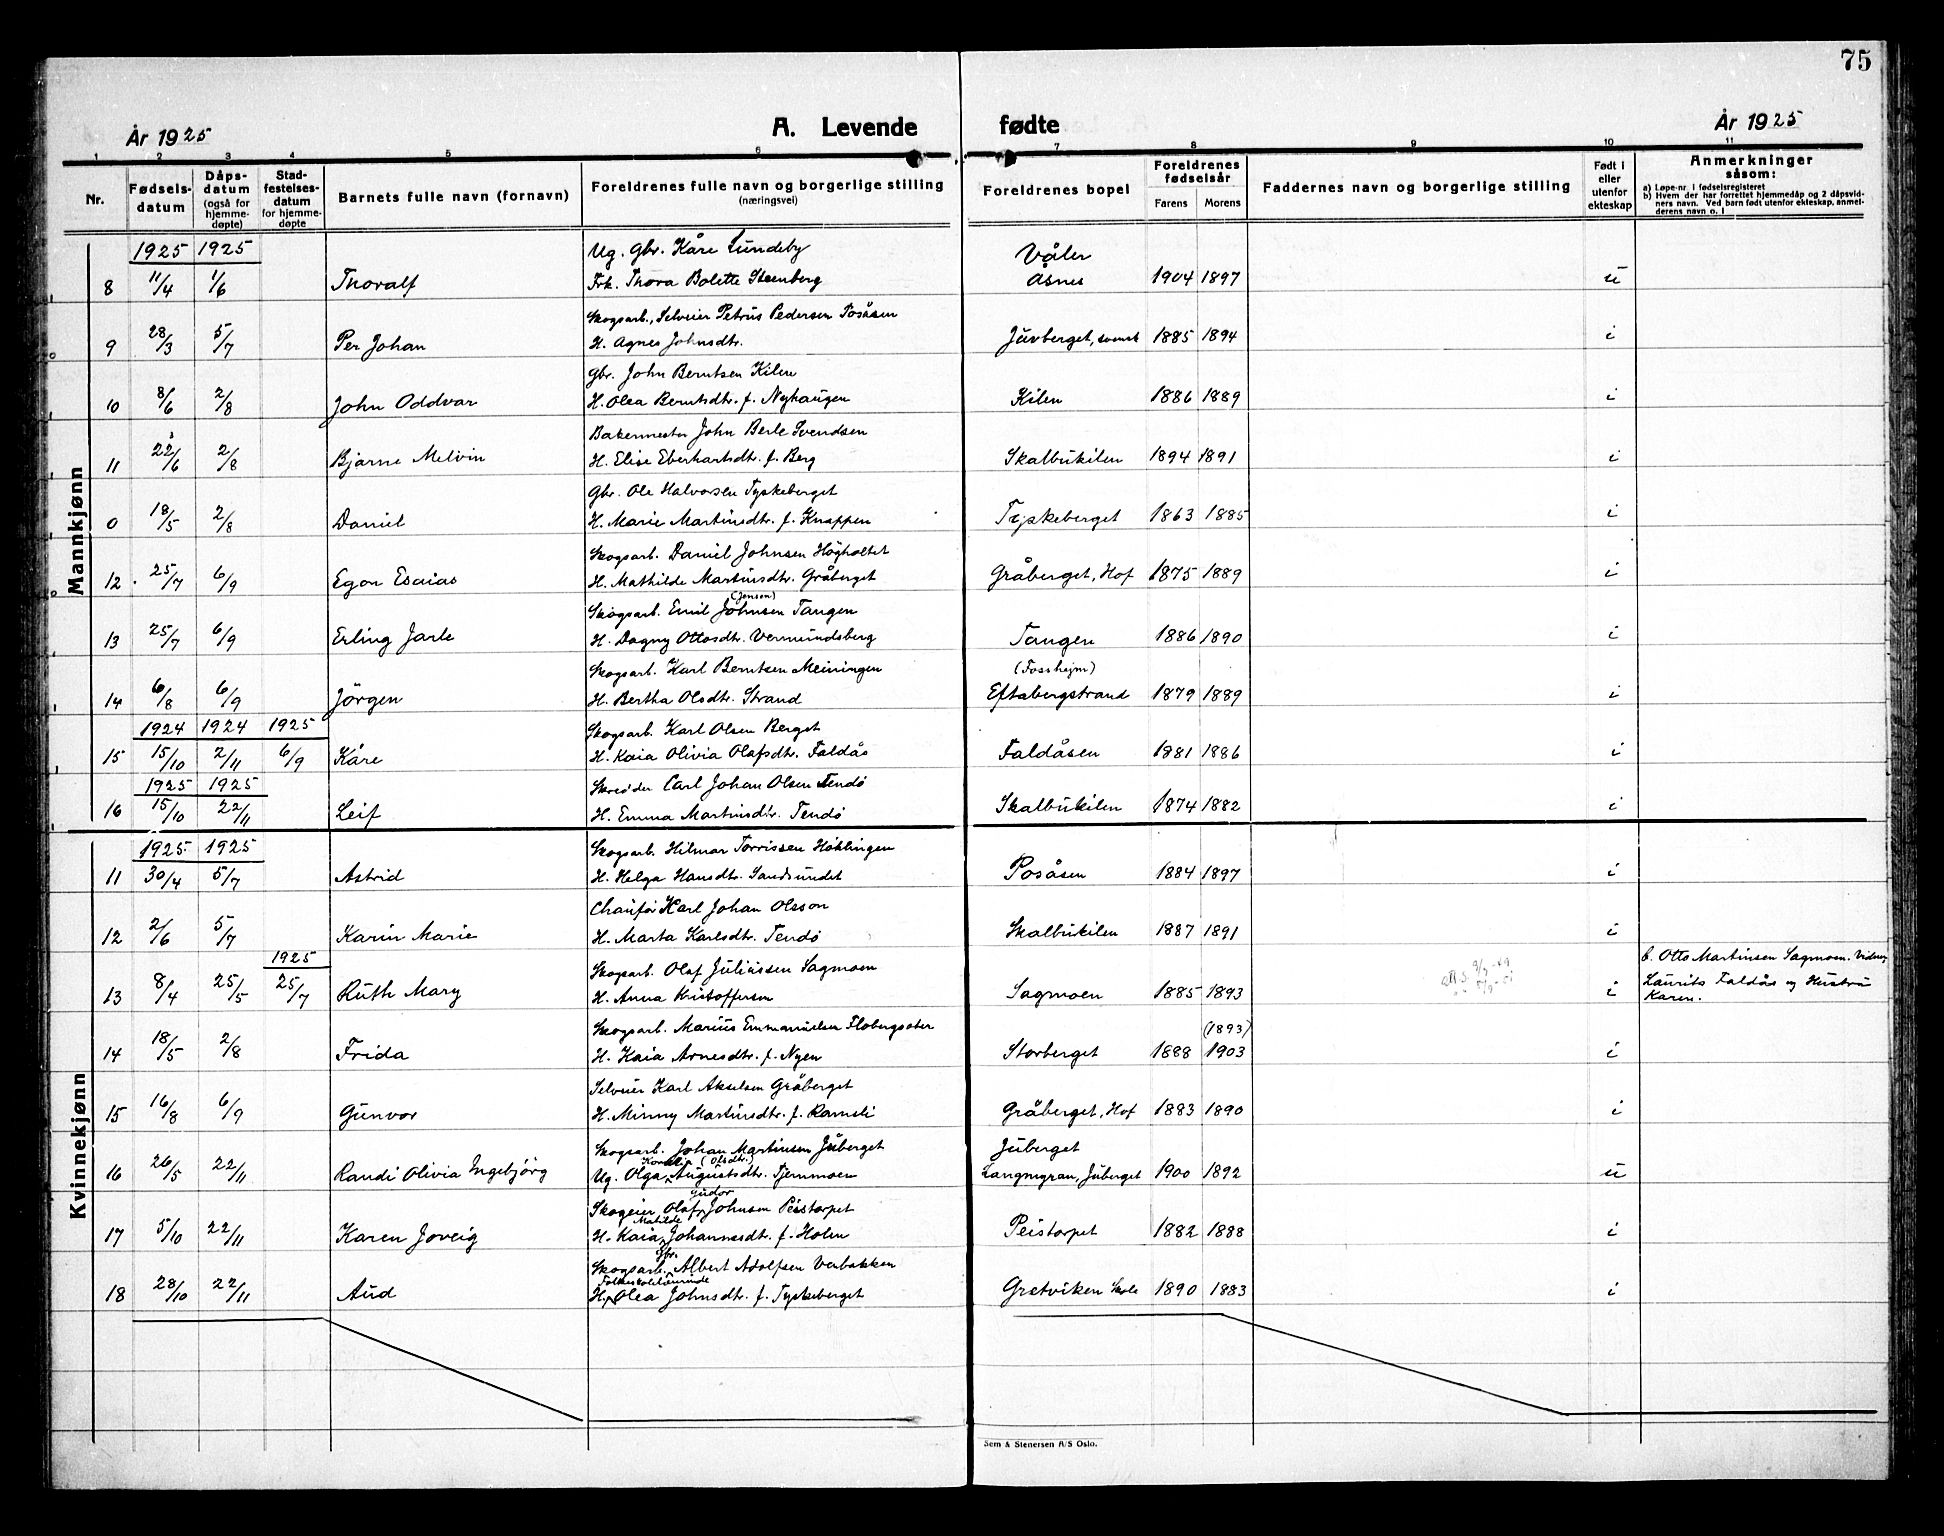 75
År 1925
A. Levende
fødte
År 1925
1 2 3 4 5 6 7 8 9 10 11
Nr.
Fødsels-
datum
Dåps-
datum
(også for
hjemme-
døpte)
Stad-
festelses-
datum
for hjemme-
døpte
Barnets fulle navn (fornavn)
Foreldrenes fulle navn og borgerlige stilling
(næringsvei)
Foreldrenes bopel
Foreldrenes
fødselsår
Farens Morens
Faddernes navn og borgerlige stilling
Født i
eller
utenfor
ekteskap
Anmerkninger
såsom:
a) Løpe-nr. i fødselsregisteret
b) Hvem der har forrettet hjemmedåp og 2 dåpsvid-
ners navn. Ved barn født utenfor ekteskap, anmel-
derens navn o. l
Mannkjønn
1925 1925 Ug. Gbr. Kåre Lundeby Våler
8 11/4 1/6 Thoralf Frk. Thora Bolette Steenberg Åsnes 1904 1897 u
Skogsarb., Selveier Petrus Pedersen Posåsen
9 28/3 5/7 Per Johan H. Agnes Johnsdtr. Juvberget, svensk 1885 1894 i
Gbr. John Berntsen Kilen
10 8/6 2/8 John Oddvar H. Olea Berntsdtr. f. Nyhaugen Kilen 1886 1889 i
Bakermester John Berle Svendsen
11 22/6 2/8 Bjarne Melvin H. Elise Eberhartsdtr. f. Berg Skalbukilen 1894 1891 i
Gbr. Ole Halvorsen Tyskeberget
0 18/5 2/8 Daniel H. Marie Martinsdtr. f. Knappen Tyskeberget 1863 1885 i
Skogsarb. Daniel Johnsen Högholtet
12 25/7 6/9 Egon Esaias H. Mathilde Martinsdtr. Gråberget Gråberget, Hof 1875 1889 i
(Jensen)
Skogsarb. Emil Johnsen Tangen
13 25/7 6/9 Erling Jarle H. Dagny Ottosdtr. Vermundsberg Tangen 1886 1890 i
Skogsarb. Karl Berntsen Meiningen (Fossheim)
14 6/8 6/9 Jörgen H. Bertha Olsdtr. Strand Eftabergstrand 1879 1889 i
1924 1924 1925 Skogsarb. Karl Olsen Berget
15 15/10 2/11 6/9 Kåre H. Kaia Olivia Olafsdtr. Faldås Faldåsen 1881 1886 i
1925 1925 Skredder Carl Johan Olsen Tendö
16 15/10 22/11 Leif H. Emma Martinsdtr. Tendö Skalbukilen 1874 1882 i
Kvinnekjønn
1925 1925 Skogsarb. Hilmar Torrissen Höklingen
11 30/4 5/7 Astrid H. Helga Hansdtr. Sandsundet Posåsen 1884 1897 i
Chauför Karl Johan Olsson
12 2/6 5/7 Karin Marie H. Marta Karlsdtr. Tendö Skalbukilen 1887 1891 i
1925 Skogsarb. Olaf Juliussen Sagmoen b. Otto Martinsen Sagmoen. Vidner
13 8/4 25/5 25/7 Ruth Mary H. Anna Kristoffersen Sagmoen 1885 1893 i Laurits Faldås og Hustru
Karen.
Skogsarb. Marius Emmanuelsen Flobergseter (1893)
14 18/5 2/8 Frida H. Kaia Arnesdtr. f. Nyen Storberget 1888 1903 i
Selveier Karl Akselsen Gråberget
15 16/8 6/9 Gunvor H. Minny Martinsdtr. f. Rameli Gråberget, Hof 1883 1890 i
Skogsarb. Johan Martinsen Juberget Juberget
(Olsdtr.)
16 26/5 22/11 Randi Olivia Ingebjörg Ug. Olga Augustsdtr. Tjernmoen Langmyran, Juberget 1900 1892 u
Gudor
Skogeier Olaf Johnsen Peistorpet
Matilde
17 5/10 22/11 Karen Joveig H. Kaia Johannesdtr. f. Holen Peistorpet 1882 1888 i
Gbr.
Skogsarb. Albert Adolfsen Verbakken
Folkeskolelærerinde
18 28/10 22/11 Aud H. Olea Johnsdtr. f. Tyskeberget Gretviken Skole 1890 1883 i
Sem & Stenersen A/S Oslo.